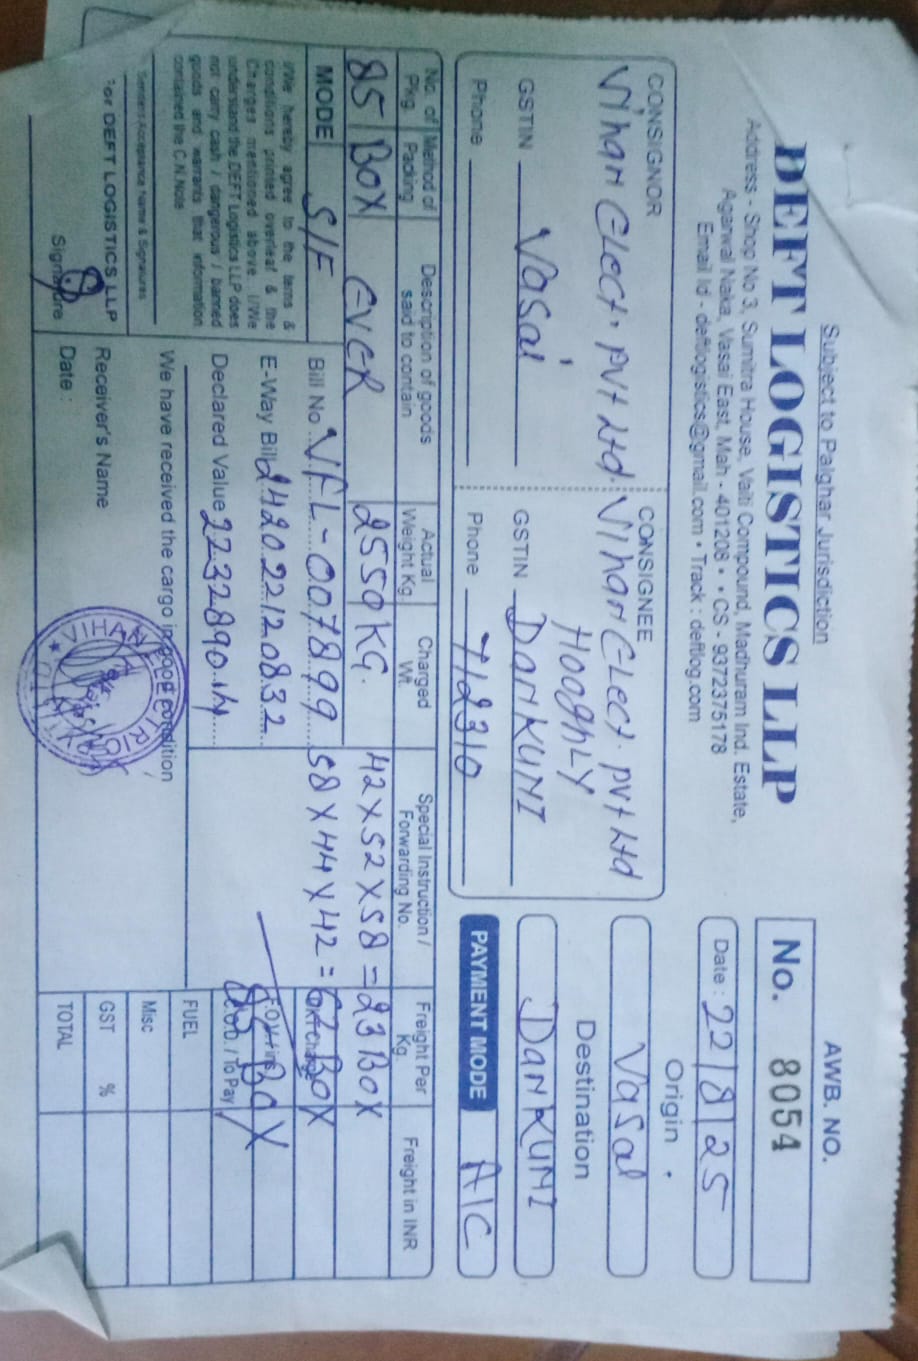 Subject to Palghar Jurisdiction
DEFT LOGISTICS LLP
Address - Shop No 3, Sumitra House, Vaiti Compound, Madhuram Ind. Estate,
Agarwal Naka, Vasai East, Mah - 401208 • • CS - 9372375178
Email Id - deftlogistics@gmail.com • Track : deftlog.com
AWB. NO.
No. 8054
Date : 22/8/25
Origin
Vasai
Destination
DanKUNI
PAYMENT MODE A/C
CONSIGNOR
Vihan Elect. PVt Ltd.
GSTIN Vasai
Phone
CONSIGNEE
Vihan Elect. Pvt Ltd
HooghLY
GSTIN DanKUNI
Phone 712310
No. of Pkg. Method of Packing Description of goods said to contain Actual Weight Kg. Charged Wt. Special Instruction / Forwarding No. Freight Per Kg. Freight in INR
85 BOX EVER 2550 KG. 42 X 52 X 58 = 23 BOX
MODE S/F
Bill No VFL-007899 58 X 44 X 42 = 62 BOX
E-Way Bill 242022120832
85 BOX
Declared Value 2232890
F.O.D. / To Pay
FUEL
Misc
GST %
TOTAL
I/We hereby agree to the terms &
conditions printed overleaf & the
Charges mentioned above. I/We
understand the DEFT Logistics LLP does
not carry cash / dangerous / banned
goods and warrants that information
contained the C.N.Note
Senders Acceptance Name & Signatures
For DEFT LOGISTICS LLP
Signature
We have received the cargo in good condition
Receiver's Name
Date :
VIHAN